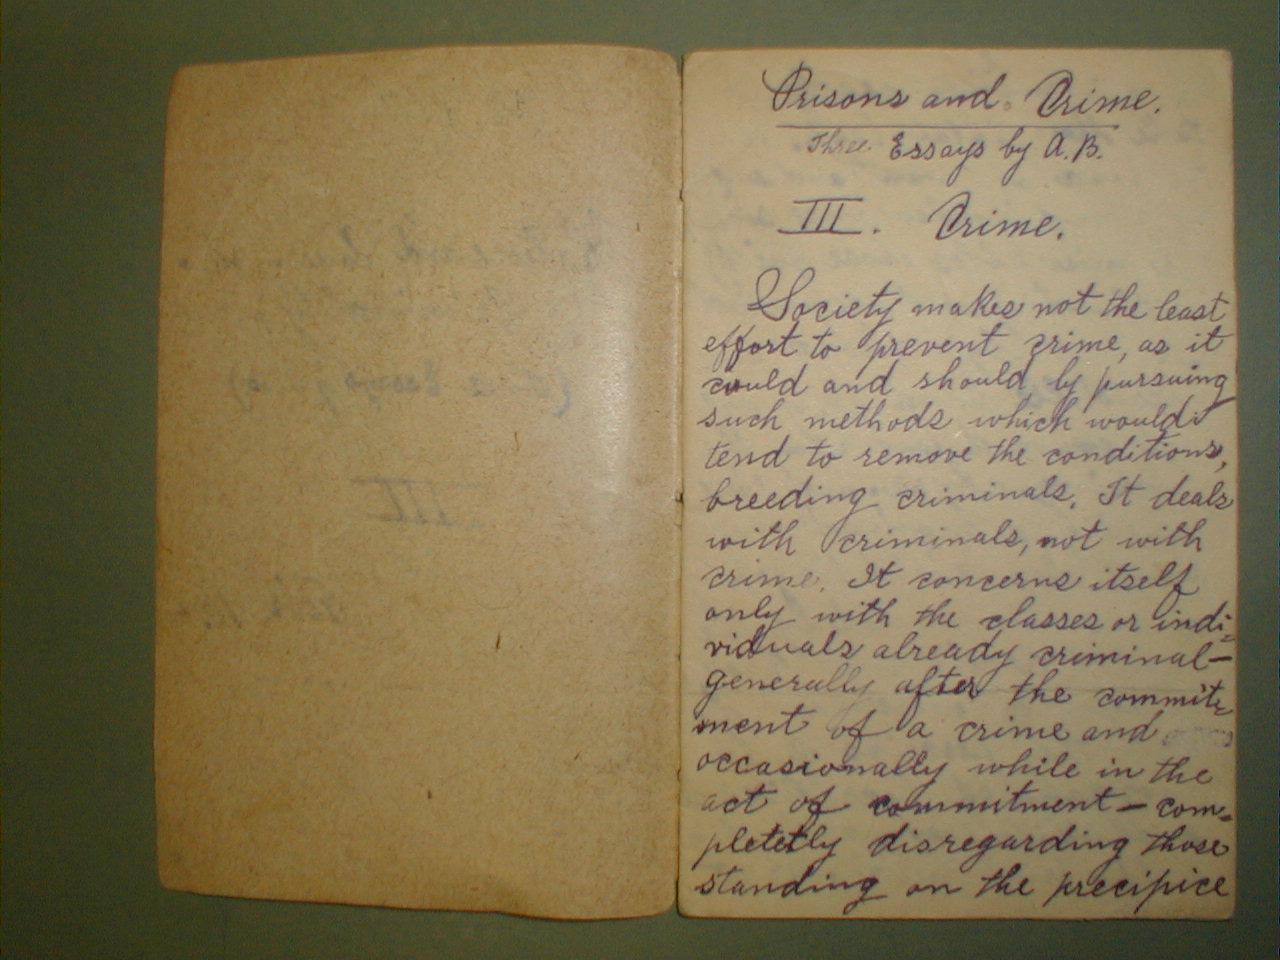 Prisons and Crime.
Three Essays by A.B.
III. Crime.
Society makes not the least
effort to prevent crime, as it
could and should by pursuing
such methods which would
tend to remove the conditions,
breeding criminals. It deals
with criminals, not with
crime. It concerns itself
only with the classes or indi-
viduals already criminal—
generally after the commit-
ment of a crime and
occasionally while in the
act of commitment — com-
pletetly disregarding those
standing on the precipice